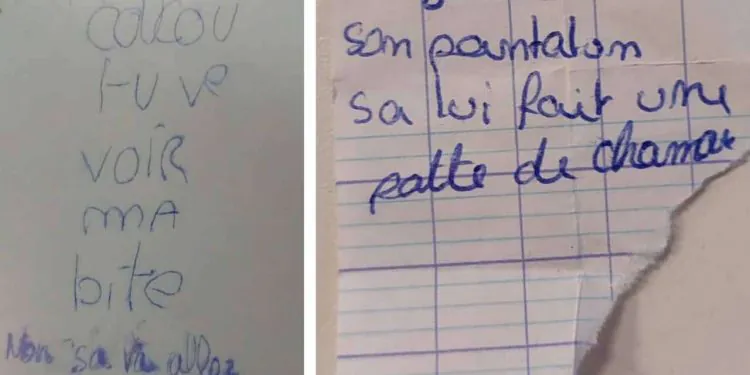 tu ve
voir
ma
bite
Non sa va
son pantalon
sa lui fait une
patte de